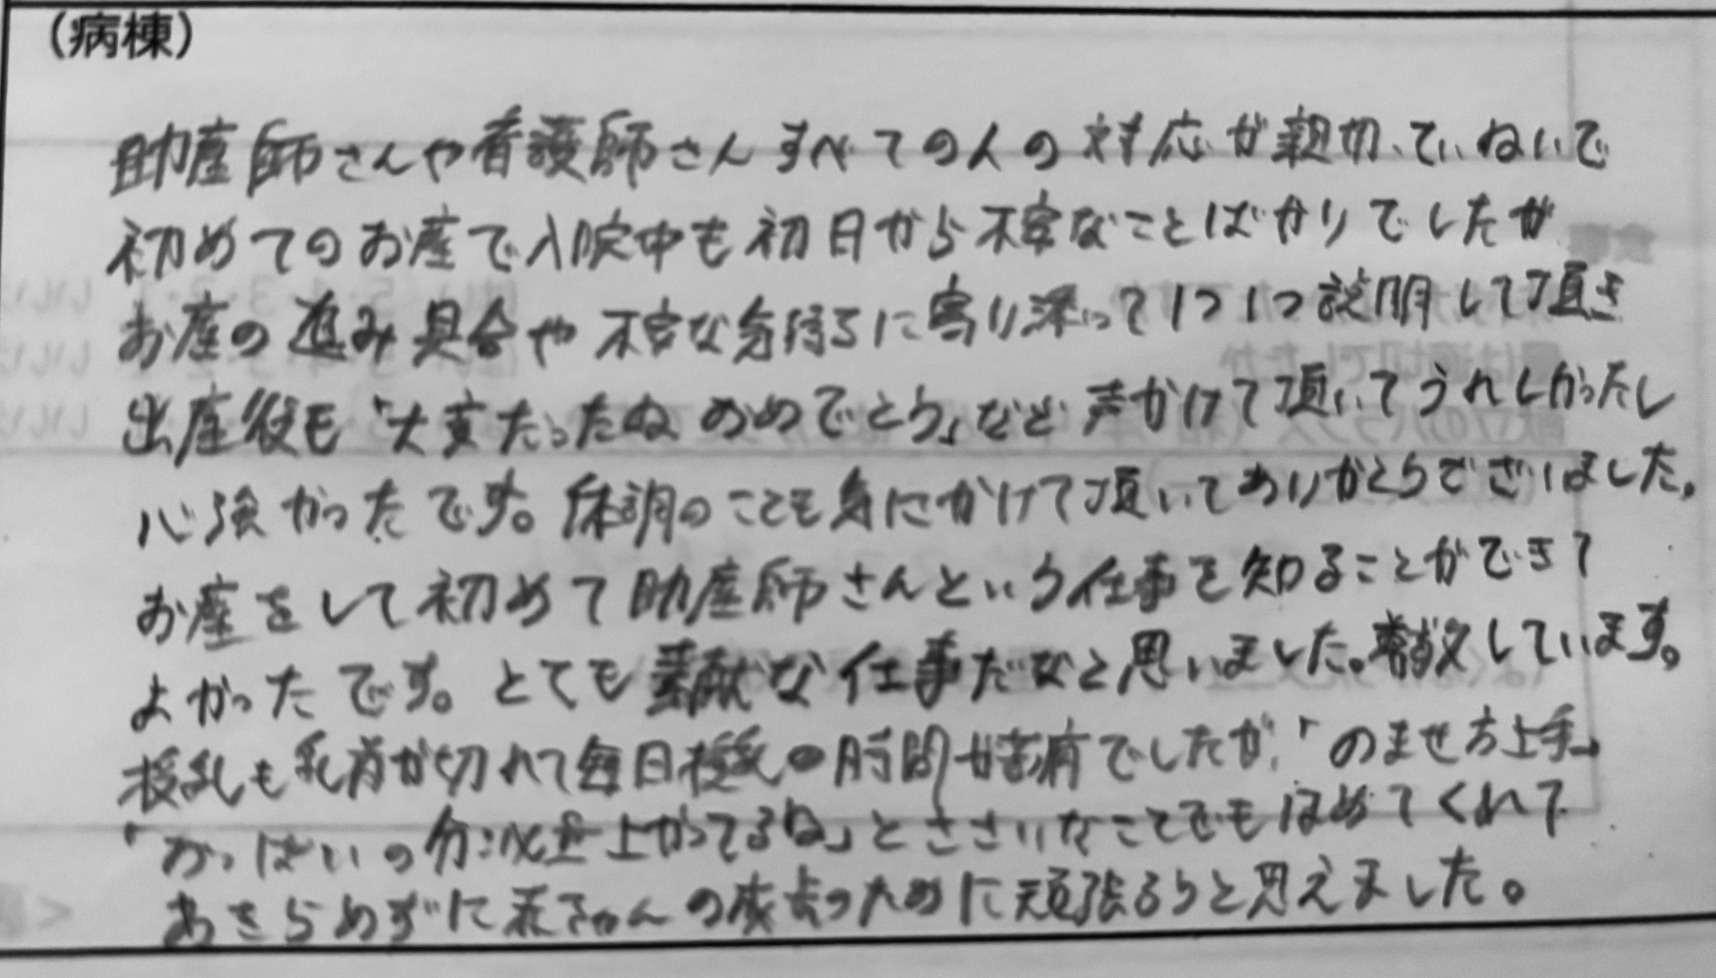 (病棟)
助産師さんや看護師さんすべての人の対応が親切、ていねいで
初めてのお産で入院中も初日から不安なことばかりでしたが
お産の進み具合や不安な気持ちに寄り添って1つ1つ説明して頂き
出産後も「大丈だったね おめでとう」など声かけて頂いてうれしかったし
心強かったです。体調のことも気にかけて頂いてありがとうございました。
お産をして初めて助産師さんという仕事を知ることができて
よかったです。とても素敵な仕事だなと思いました。尊敬しています。
授乳も乳首が切れて毎日授乳の時間が苦痛でしたが、「のませ方上手」
「おっぱいの分泌量上がってるね」とささいなことでもほめてくれて
あきらめずに赤ちゃんの成長のために頑張ろうと思えました。